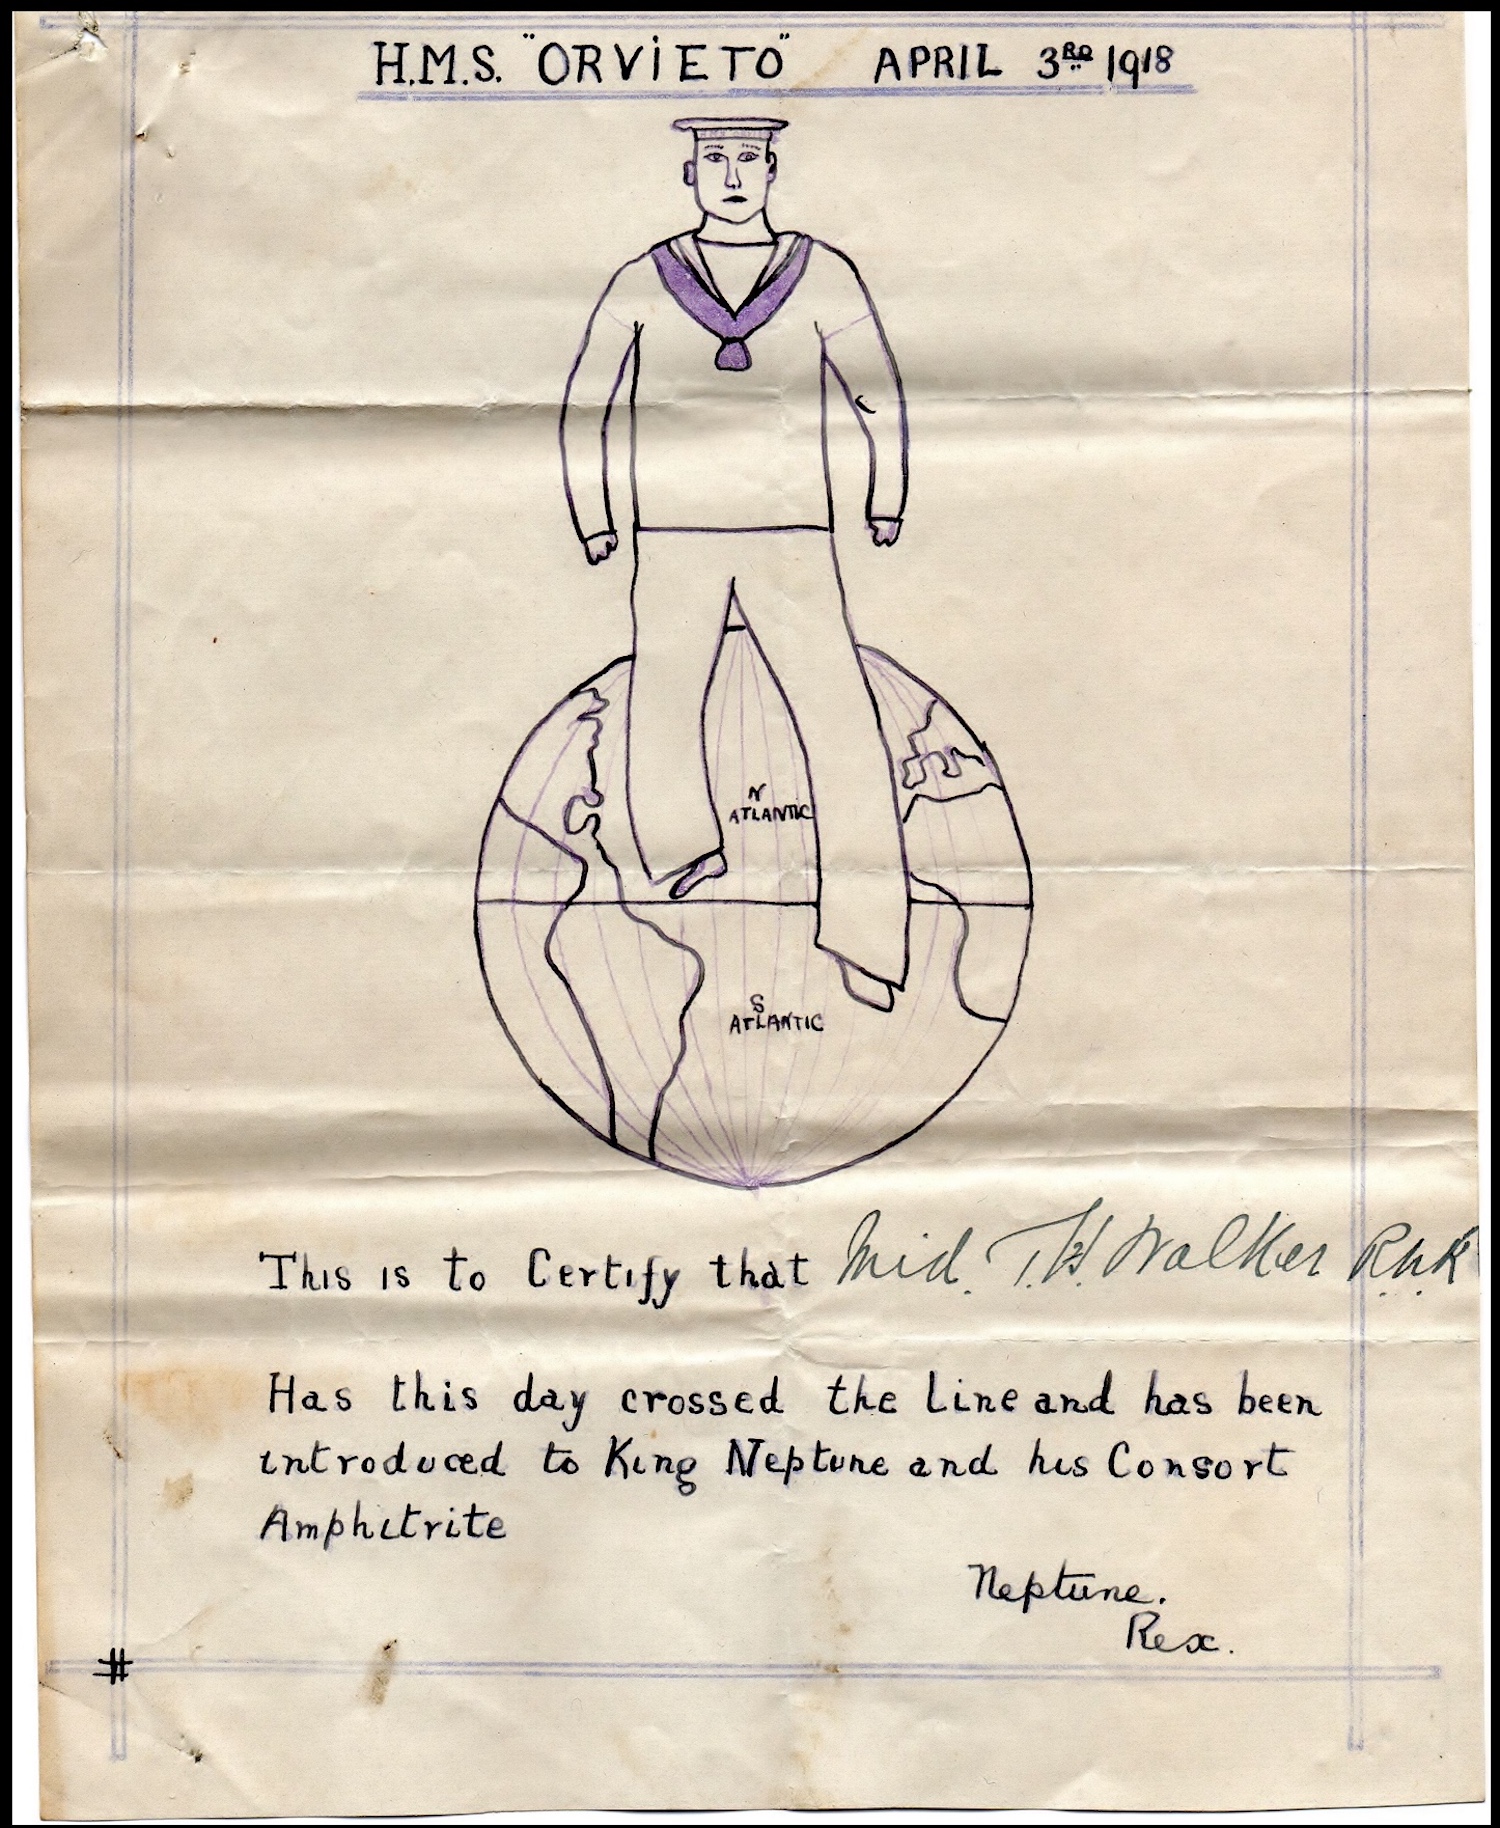 H.M.S. "ORViETO" APRIL 3RD 1918
N
ATLANTIC
S
ATLANTIC
This is to Certify that Mid. T.H. Walker R.N.R
Has this day crossed the Line and has been
introduced to King Neptune and his Consort
Amphitrite
Neptune.
Rex.
#